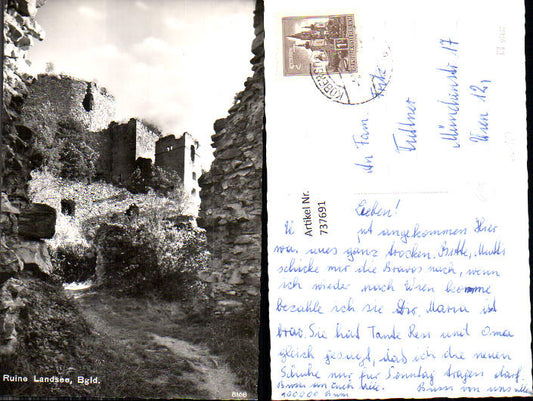 Ruine Landsee, Bgld.
8166
Artikel Nr.
737691
An Fam.
Tullner
Münchnerstr 17
Wien 12,
Lieben!
gut angekommen. Hier
war alles ganz trocken. Bitte, Mutti
schicke mir die Bravos nach, wenn
ich wieder nach Wien komme
bezahle ich sie Dir. Maria ist
brav. Sie hat Tante Resi und Oma
gleich gesagt, daß ich die neuen
Schuhe nur für Sonntag tragen darf.
Bussi an Euch beide. Bussi von uns allen
100000 Bussi